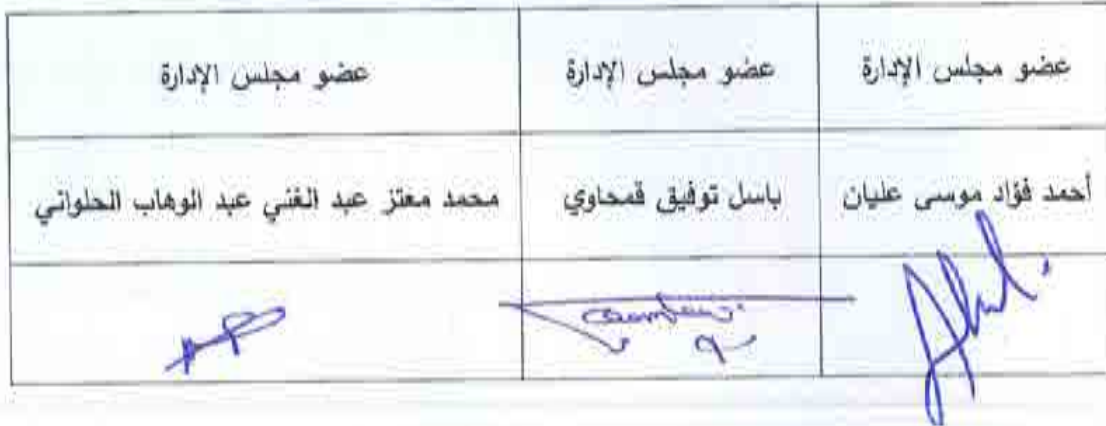 عضو مجلس الإدارة عضو مجلس الإدارة عضو مجلس الإدارة
أحمد فؤاد موسى عليان باسل توفيق قمحاوي محمد معتز عبد الغني عبد الوهاب الحلواني